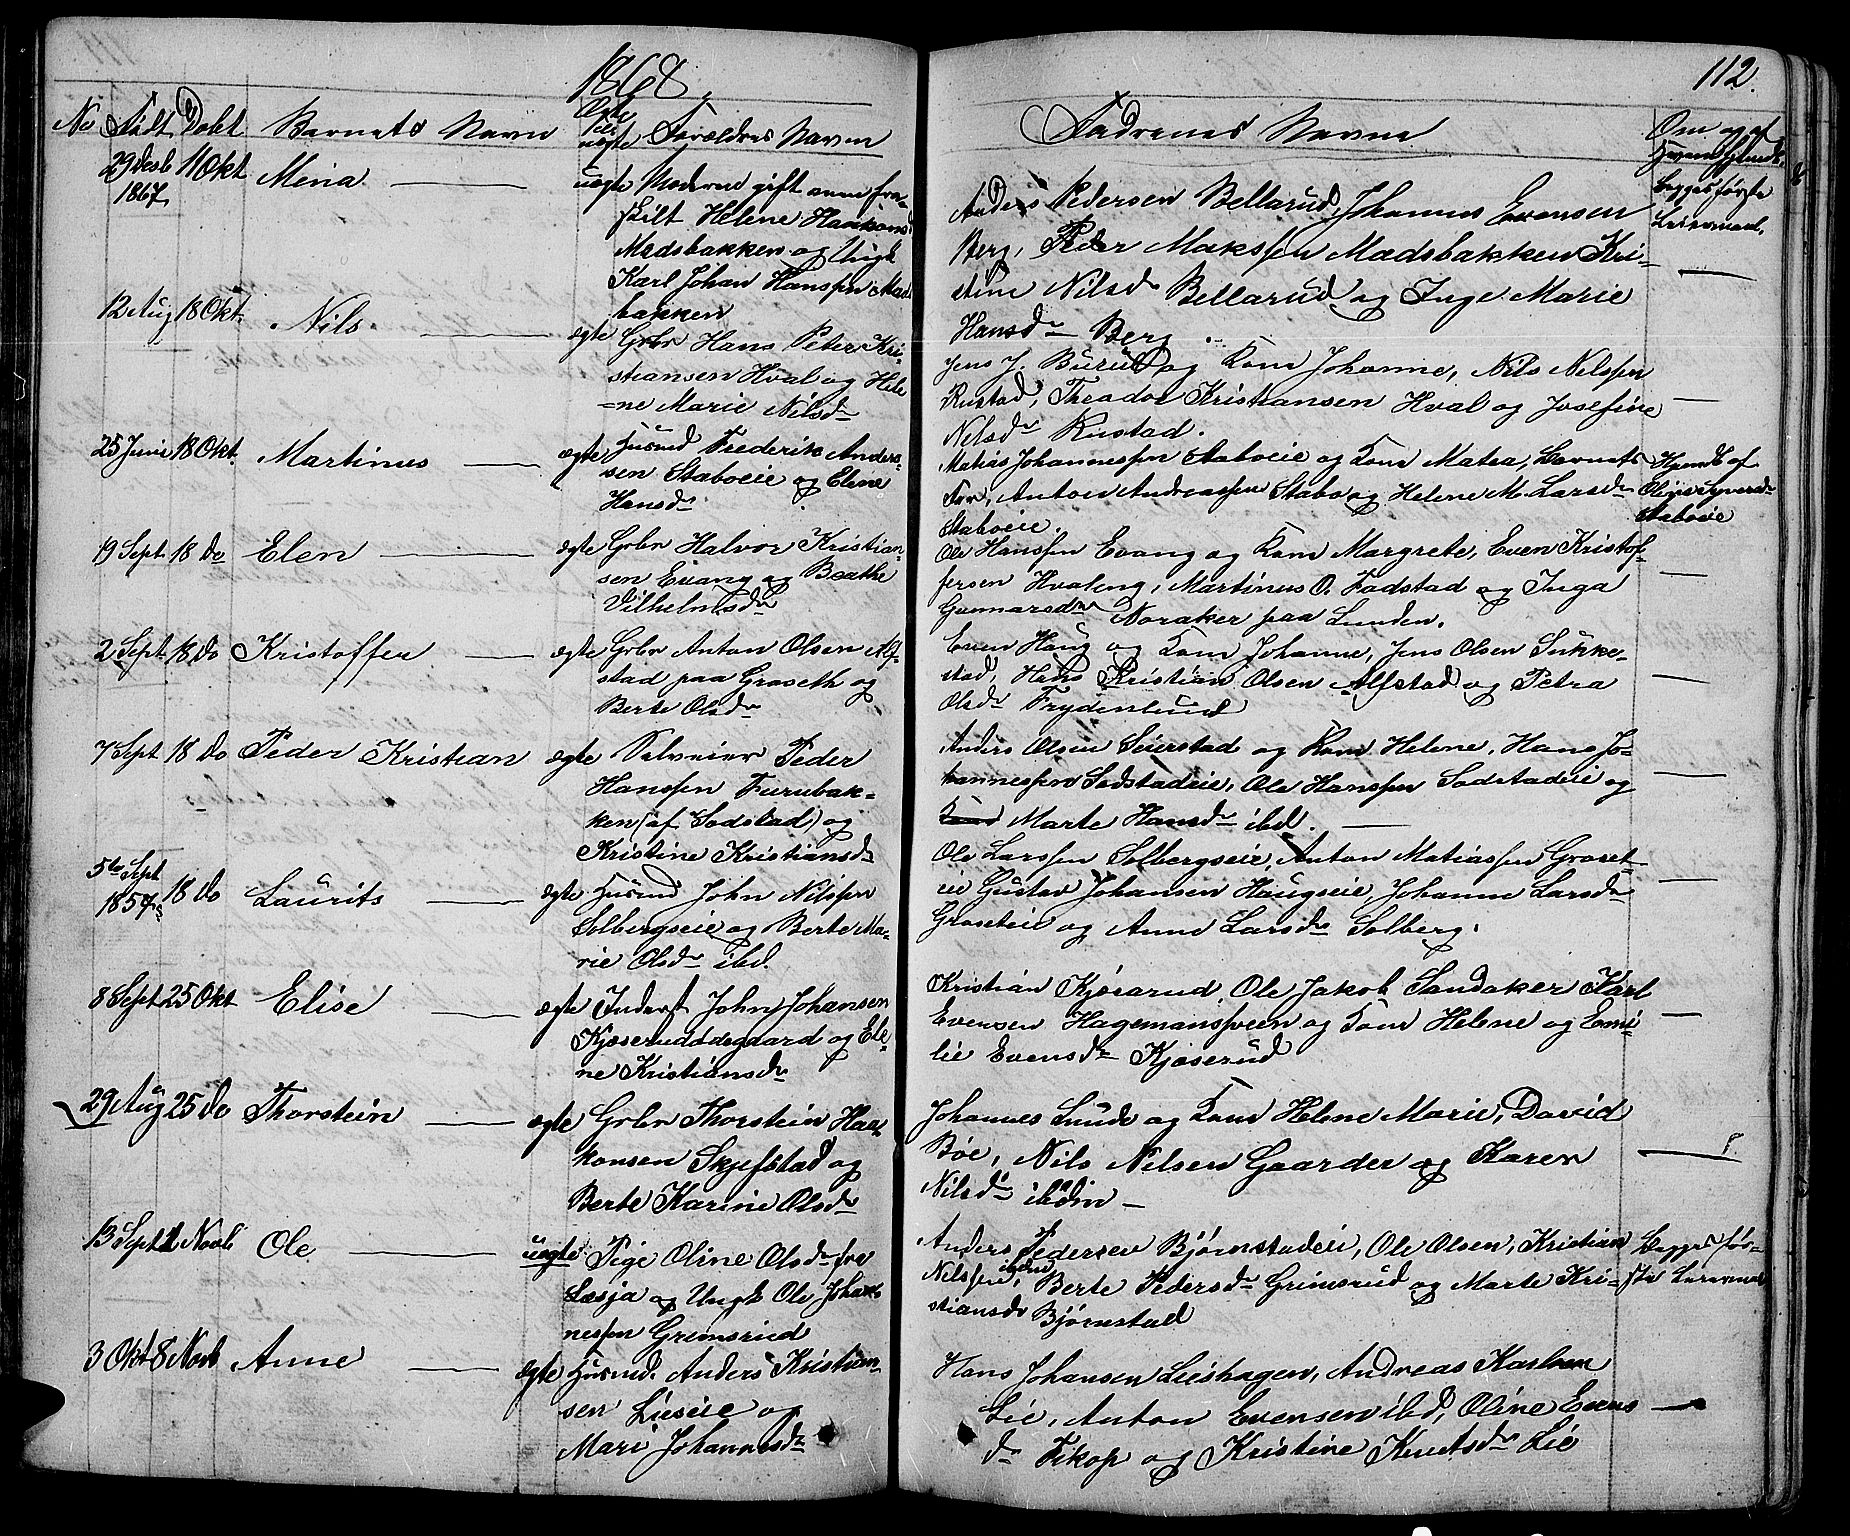 1868.
112.
No Födt Döbt Barnets Navn Ægte eller uægte Forældres Navn
Fadrenes Navne
Om og af hvem hjemdöbt
29 Decb 1867 11 Okt Mina uægte Moderen gift men fra-
skilt Helene Haakonsd
Madsbakken og Ungk
Karl Johan Hanssen Mads
bakken
Anders Pedersen Bellerud, Johannes Evensen
Berg, Peder Maksssen Madsbakken Kri-
stine Nilsdr Bellerud og Inge Marie
Hansdr Berg.
begges første
Leiermaal.
12 Aug 18 Okt. Nils ægte Grbr Hans Peter Kri-
stiansen Hval og Hele
=ne Marie Nilsdr
Jens J. Burud og Kone Johanne, Nils Nilssen
Rustad, Theador Kristiansen Hval og Josefine
Nilsdr Rustad.
25 Juni 18 Okt. Martinus ægte Husmd Frederik Anders-
sen Staboeie og Eline
Hansdr
Matias Johannessen Staboeie og Kone Matea, Barnets
Far, Anton Andreassen Stabo og Helene M. Larsdr
Staboeie.
Hjemdt af
Oline Syversdr
Staboeie
19 Sept 18 do Elen ægte Grbr Halvor Kristian-
sen Evang og Beathe
Vilhelmsdr
Ole Hanssen Evang og Kone Margrete, Even Kristof-
fersen Hvaleng, Martinus O. Fodstad og Inga
Gunnarsdr Noraker paa Lunden.
2 Sept 18 do Kristoffer ægte Grbr Anton Olsen Alf-
stad paa Groseth og
Berte Olsdr
Even Haug og Kone Johanne, Jens Olsen Sukke-
stad, Hans Kristian Olsen Alfstad og Petra
Olsdr Frydenlund
7 Sept 18 do Peder Kristian ægte Selveier Peder
Hanssen Furubak-
ken (af Sodstad) og
Kristine Kristiansdr
Anders Olsen Seierstad og Kone Helene, Hans Jo-
hannessen Sodstadeie, Ole Hanssen Sodstadeie og
Marte Hansdr ibd.
5te Sept 1857 18 do Laurits ægte Husmd John Nilssen
Solbergseie og Berte Ma-
rie Olsdr ibd.
Ole Larssen Solbergseie, Anton Matiassen Groset-
eie Gustav Johansen Haugseie, Johanne Larsdr
Groseteie og Anne Larsdr Solberg.
8 Sept 25 Okt Elise ægte Inderst John Johansen
Kjøserudødegaard og Ele-
ne Kristiansdr
Kristian Kjøserud, Ole Jakob Sandaker Karl
Evensen Hagemansveen og Kone Helene og Emi-
lie Evensdr Kjøserud
29 Aug 25 do Thorstein ægte Grbr Thorstein Haa-
konsen Skjefstad og
Berte Karine Olsdr
Johannes Lunde og Kone Helene Marie, David
Böe, Nils Nilsen Gaarder og Karen
Nilsdr ibdm
13 Sept 1 Novb Ole uægte Pige Oline Olsdr fra
Læsja og Ungk Ole Johan-
nessen Grimsrud
Anders Pedersen Bjørnstadeie, Ole Olsen, Kristian
Nilssen ibdm, Berte Pedersdr Grimsrud og Marte Kri-
stiansdr Bjørnstad
begges før-
ste Leiermaal
3 Okt 8 Novb Anne ægte Husmd. Anders Kristian-
sen Lieseie og
Mari Johannesdr
Hans Johansen Lieshagen, Andreas Karlsen
Lie, Anton Evensen ibd, Oline Evens
dr Fikop og Kristine Knutsdr Lie